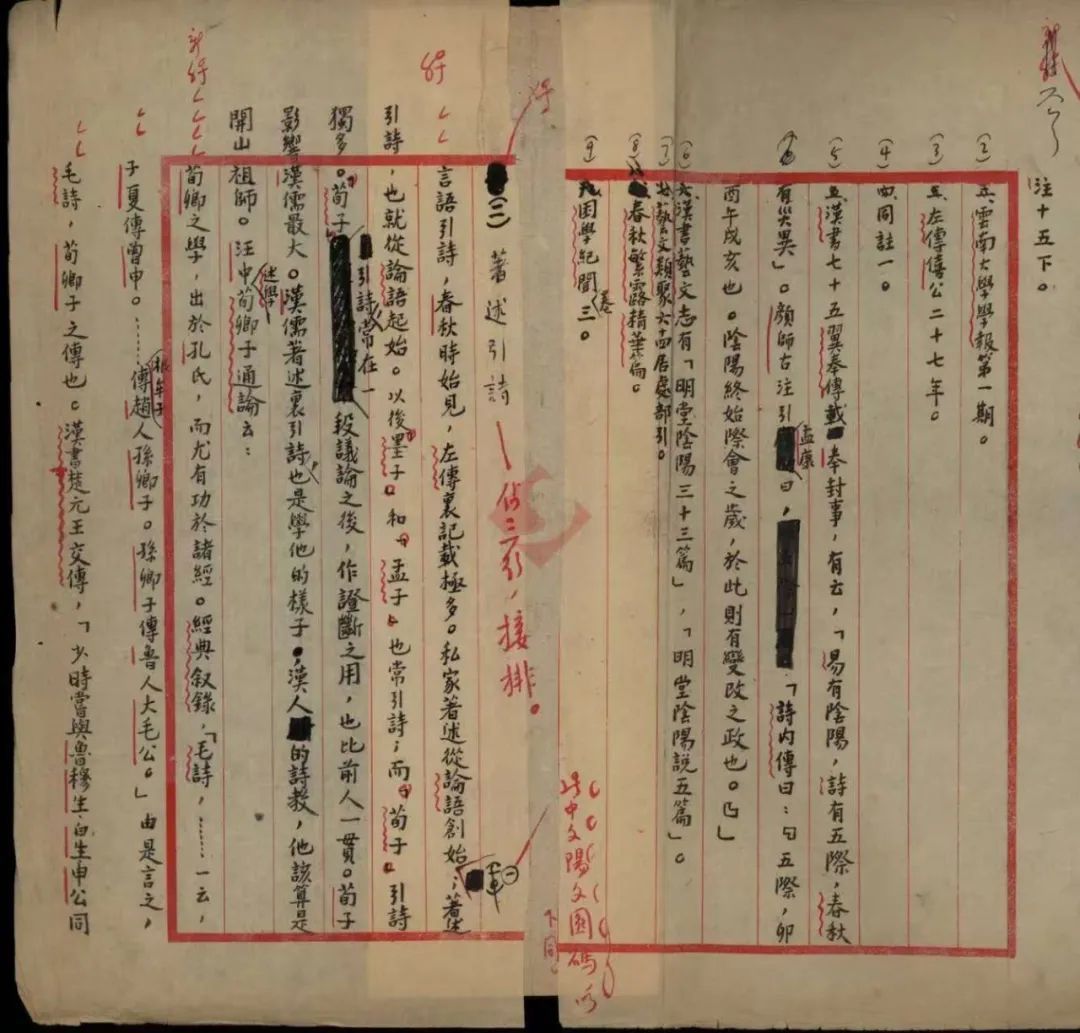 注十五下。
(2)雲南大學學報第一期。
(3)左傳僖公二十七年。
(4)同註一。
(5)漢書七十五翼奉傳載奉封事,有云,「易有陰陽,詩有五際,春秋
有災異」。顏師古注引孟康曰,「詩內傳曰:『五際,卯
酉午戌亥也。陰陽終始際會之歲,於此則有變改之政也。』」
(6)漢書藝文志有「明堂陰陽三十三篇」,「明堂陰陽説五篇」。
(7)藝文類聚六十四居處部引。
(8)春秋繁露精華篇。
(9)困學紀聞卷三。
此中文陽文圓碼
下同
(二)著述引詩
佔三行,接排。
言語引詩,春秋時始見,左傳裏記載極多。私家著述從論語創始;著述
引詩,也就從論語起始。以後墨子和孟子也常引詩;而荀子引詩
獨多。荀子引詩常在一段議論之後,作證斷之用,也比前人一貫。荀子
影響漢儒最大。漢儒著述裏引詩,也是學他的樣子。漢人的詩教,他該算是
開山祖師。汪中述學荀卿子通論云:
荀卿之學,出於孔氏,而尤有功於諸經。經典叙錄,「毛詩,……一云,
子夏傳曾申。……根牟子傳趙人孫卿子。孫卿子傳魯人大毛公。」由是言之,
毛詩,荀卿子之傳也。漢書楚元王交傳,「少時嘗與魯穆生白生申公同